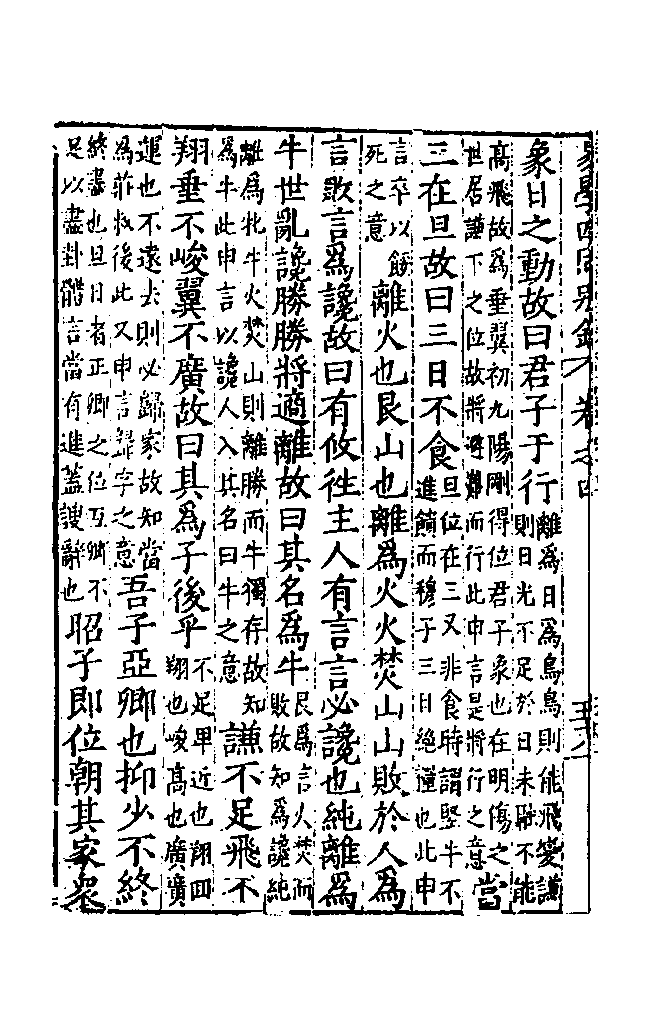 易學四同別錄 卷之四
象日之動故曰君子于行離爲日爲鳥鳥則能飛變謙則日光不足於日未融不能
高飛故爲垂翼初九陽剛得位君子象也在明傷之世居謙下之位故將辟難而行此申言是將行之意當
三在旦故曰三日不食旦位在三又非食時謂豎牛不進饋而穆子三日絕糧也此申
言卒以餒死之意離火也艮山也離爲火火焚山山敗於人爲
言敗言爲讒故曰有攸徃主人有言言必讒也純離爲
牛世亂讒勝勝將適離故曰其名爲牛艮爲言火焚而敗故知爲讒純
離爲牝牛火焚山則離勝而牛獨存故知爲牛此申言以讒人入其名曰牛之意謙不足飛不
翔垂不峻翼不廣故曰其爲子後乎不足卑近也翔回翔也峻高也廣廣
運也不遠去則必歸家故知當爲莊叔後此又申言歸字之意吾子亞卿也抑少不終
終盡也旦日者正卿之位亞卿不足以盡卦體言當有進蓋謏辭也昭子即位朝其家衆